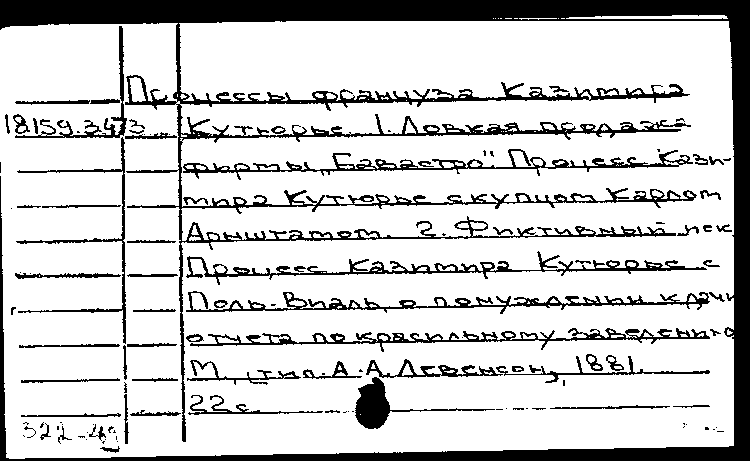 Процессы француза Казимира
18.159.3.473 Кутюрье. 1. Ловкая продажа
фирмы „Бавастро". Процесс Кази-
мира Кутюрье с купцом Карлом
Арнштамом. 2. Фиктивный иск
Процесс Казимира Кутюрье с
Поль-Виаль о понуждении к дачи
отчета по красильному заведению
М., [тип. А.А. Левенсон], 1881.
22 с.
322-49